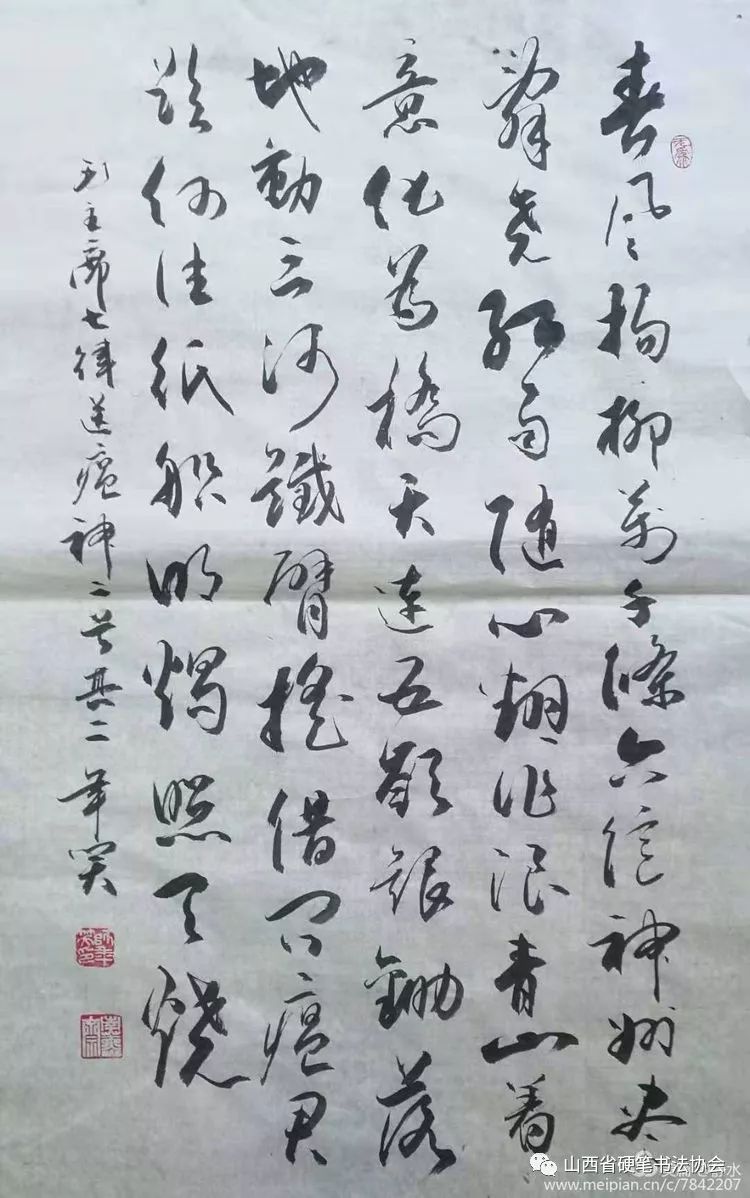 春风楊柳萬千條六億神州尽
舜尧紅雨随心翻作浪青山着
意化為橋天连五嶺銀鋤落
地動三河鐵臂搖借问瘟君
欲何往紙船明燭照天燒
毛主席七律送瘟神二首其二
山西省硬笔书法协会
www.meipian.cn/c/7842207